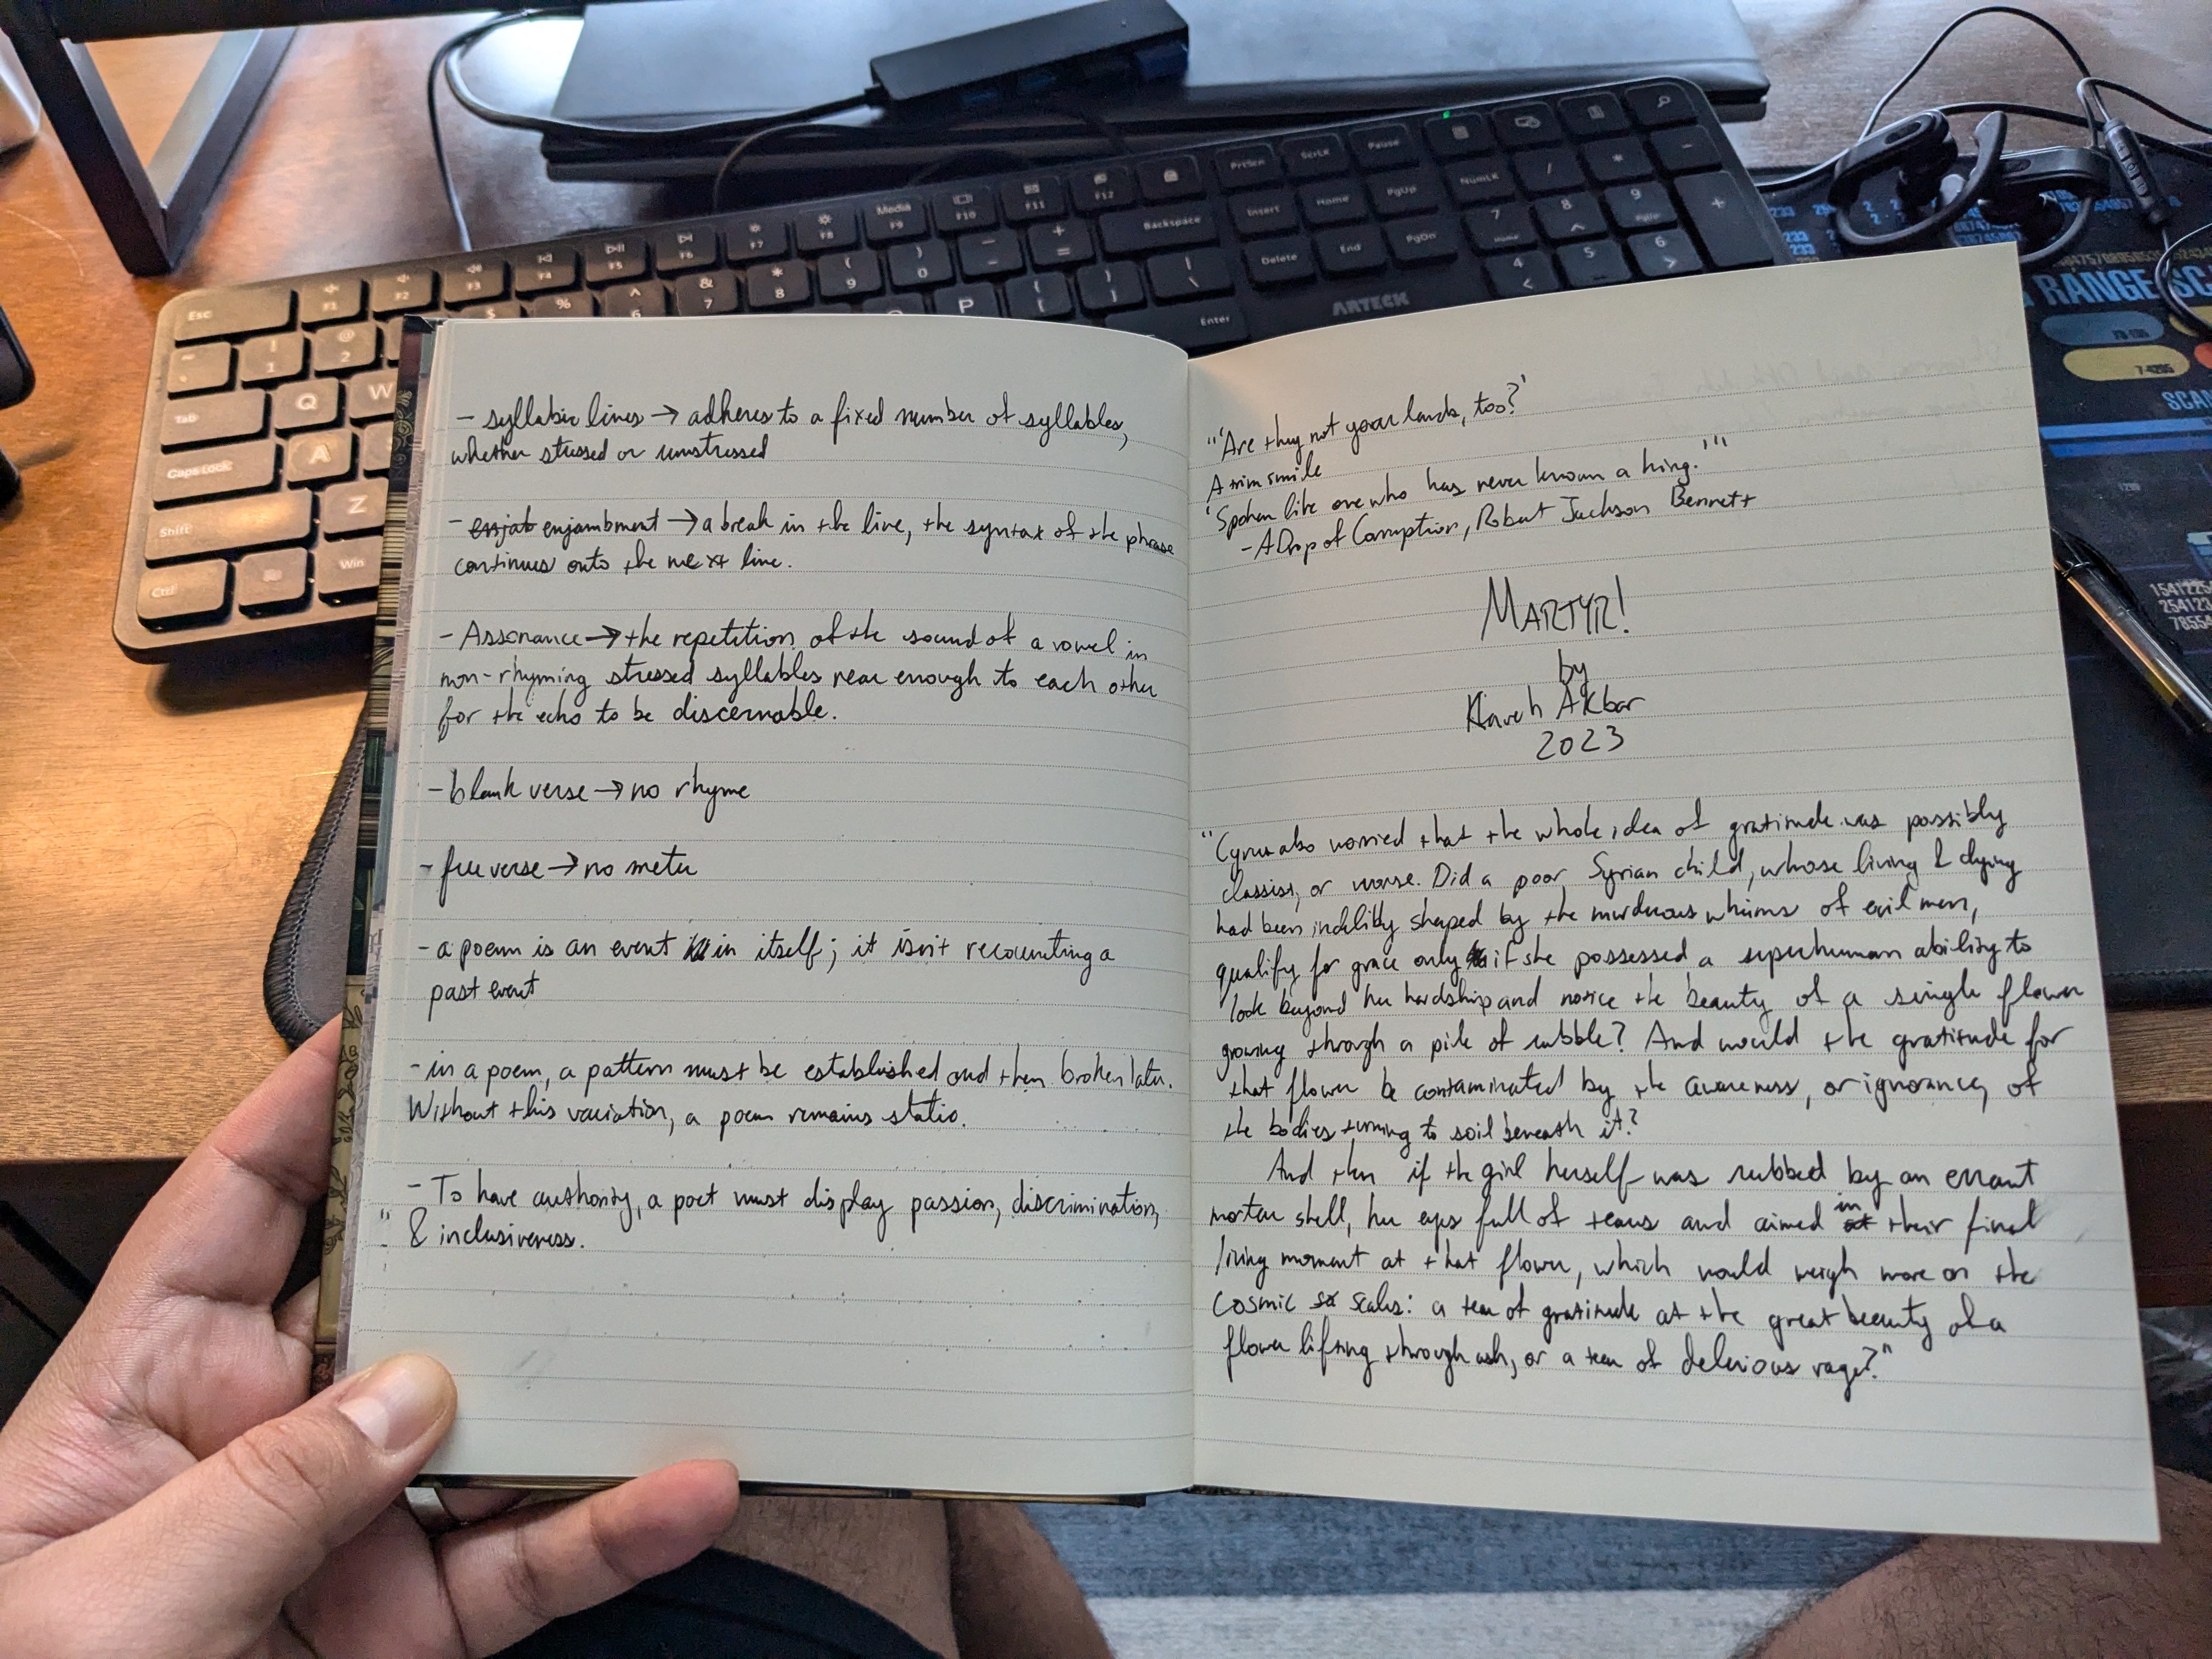 - syllabic lines → adheres to a fixed number of syllables,
whether stressed or unstressed
- enjab enjambment → a break in the line, the syntax of the phrase
continues onto the next line.
- Assonance → the repetition of the sound of a vowel in
non-rhyming stressed syllables near enough to each other
for the echo to be discernable.
- blank verse → no rhyme
- free verse → no meter
- a poem is an event in itself; it isn't recounting a
past event
- in a poem, a pattern must be established and then broken later.
Without this variation, a poem remains static.
- To have authority, a poet must display passion, discrimination,
& inclusiveness.
"'Are they not your lands, too?'
A trim smile
'Spoken like one who has never known a king.'"
- A Drop of Corruption, Robert Jackson Bennett
MARTYR!
by
Kaveh Akbar
2023
"Cyrus also worried that the whole idea of gratitude was possibly
classist, or worse. Did a poor Syrian child, whose living & dying
had been indelibly shaped by the murderous whims of evil men,
qualify for grace only if she possessed a superhuman ability to
look beyond her hardship and notice the beauty of a single flower
growing through a pile of rubble? And would the gratitude for
that flower be contaminated by the awareness, or ignorance, of
the bodies turning to soil beneath it?
And then if the girl herself was rubbed by an errant
mortar shell, her eyes full of tears and aimed in their final
living moment at that flower, which would weigh more on the
cosmic scales: a tear of gratitude at the great beauty of a
flower lifting through ash, or a tear of delirious rage?"
Esc
F1
F2
F3
F4
F5
F6
F7
F8
Media
F9
F10
F11
F12
PrtScn
ScrLK
Pause
Backspace
Insert
Home
PgUp
NumLK
Delete
End
PgDn
Enter
Tab
Q
W
Caps Lock
A
Shift
Z
Ctrl
Win
P
ARTECK
RANGE SC
SCAN